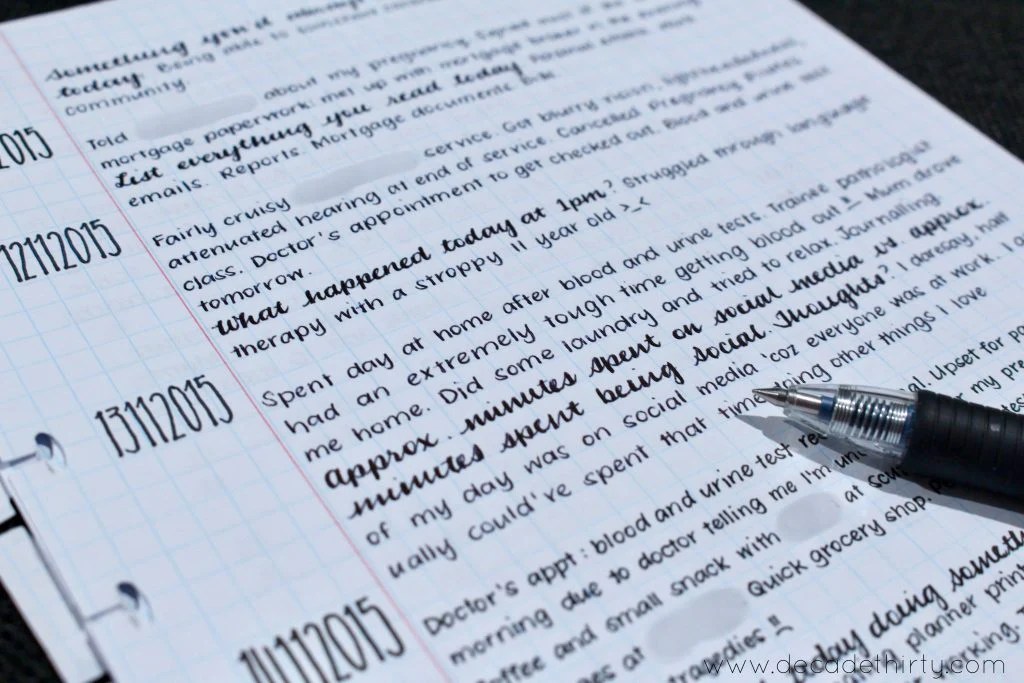 something you
today. Being able to
community
2015
Told about my pregnancy. Signed most of the
mortgage paperwork; met up with mortgage broker in the evening.
List everything you read today. Personal emails. Work
emails. Reports. Mortgage documents.
12112015
Fairly cruisy service. Got blurry vision, lightheadedness,
attenuated hearing at end of service. Cancelled Pregnancy Pilates
class. Doctor's appointment to get checked out. Blood and urine test
tomorrow.
What happened today at 1pm? Struggled through language
therapy with a stroppy 11 year old >_<
13112015
Spent day at home after blood and urine tests. Trainee pathologist
had an extremely tough time getting blood out!! Mum drove
me home. Did some laundry and tried to relax. Journalling.
approx. minutes spent on social media vs. approx.
minutes spent being social. Thoughts? I daresay, half
of my day was on social media 'coz everyone was at work. I
ually could've spent that time doing other things I love
14112015
Doctor's appt: blood and urine test Upset for
morning due to doctor telling me I'm my
coffee and small snack with at
at Quick grocery shop.
tragedies!!
day doing
a planner
working.
www.decadethirty.com